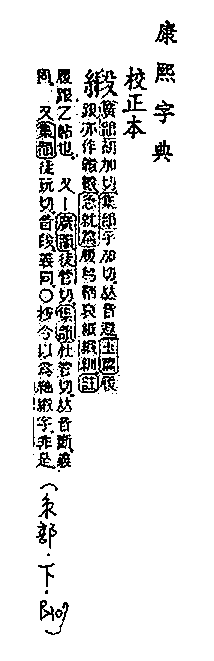 康熙字典
校正本
緞
廣韻胡加切集韻乎加切𠀤音遐玉篇履
跟亦作急就篇履舄鞜裒絨緞紃註
履跟之帖也。又|廣韻徒管切集韻杜管切𠀤音斷義
同。又集韻徒玩切音段義同○按今以爲紬緞字非是
(糸部·下·B109)